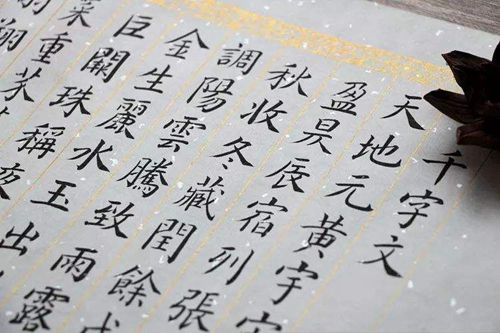 千字文
天地元黄宇
盈昃辰宿列張
秋收冬藏閏餘成
調陽雲騰致雨露
金生麗水玉出
巨闕珠稱夜
菜重芥
翔